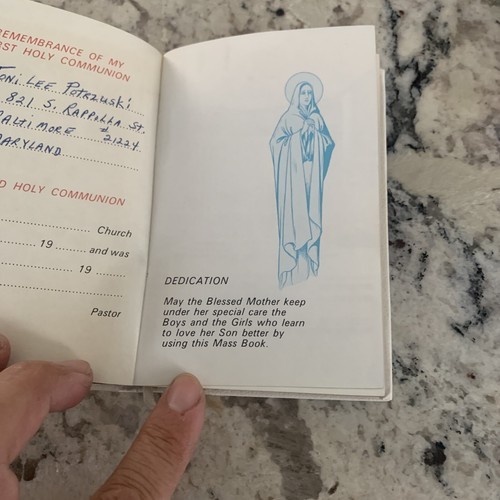 REMEMBRANCE OF MY
FIRST HOLY COMMUNION
TONI LEE POTRZUSKI
821 S. RAPPLLA ST.
BALTIMORE #21224
MARYLAND
D HOLY COMMUNION
Church
19 and was
19
Pastor
DEDICATION
May the Blessed Mother keep
under her special care the
Boys and the Girls who learn
to love her Son better by
using this Mass Book.